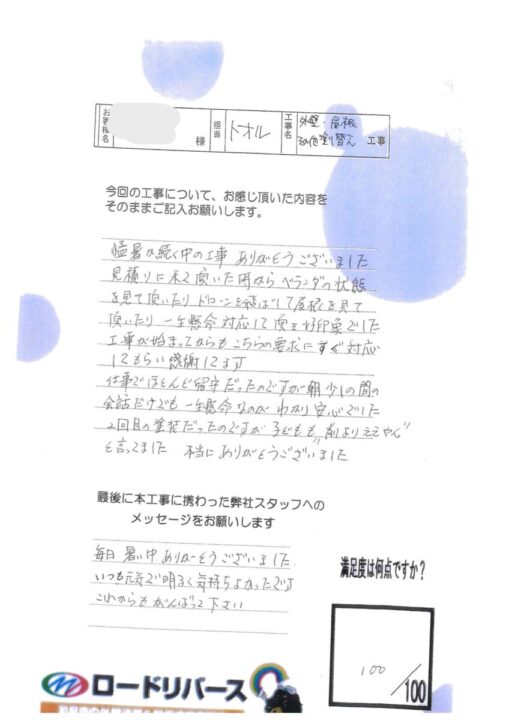 お客様名 様 担当 トオル 工事名 外壁・屋根
その他塗り替え 工事
今回の工事について、お感じ頂いた内容を
そのままご記入お願いします。
猛暑が続く中の工事 ありがとうございました
見積りに来て頂いた時から ベランダの状態
を見て頂いたり ドローンを飛ばして屋根を見て
頂いたり 一生懸命対応して頂き好印象でした
工事が始まってからも こちらの要求に すぐ対応
してもらい感謝してます
仕事でほとんど留守だったのですが 朝 少しの間の
会話だけでも 一生懸命なのが わかり 安心でした
2回目の塗装だったのですが 子どもも "前よりええやん"
と言ってました 本当に ありがとうございました
最後に本工事に携わった弊社スタッフへの
メッセージをお願いします
毎日 暑い中 ありがとうございました
いつも元気で明るく気持ちよかったです
これからも がんばって下さい
満足度は何点ですか？
100/100
ロードリバース